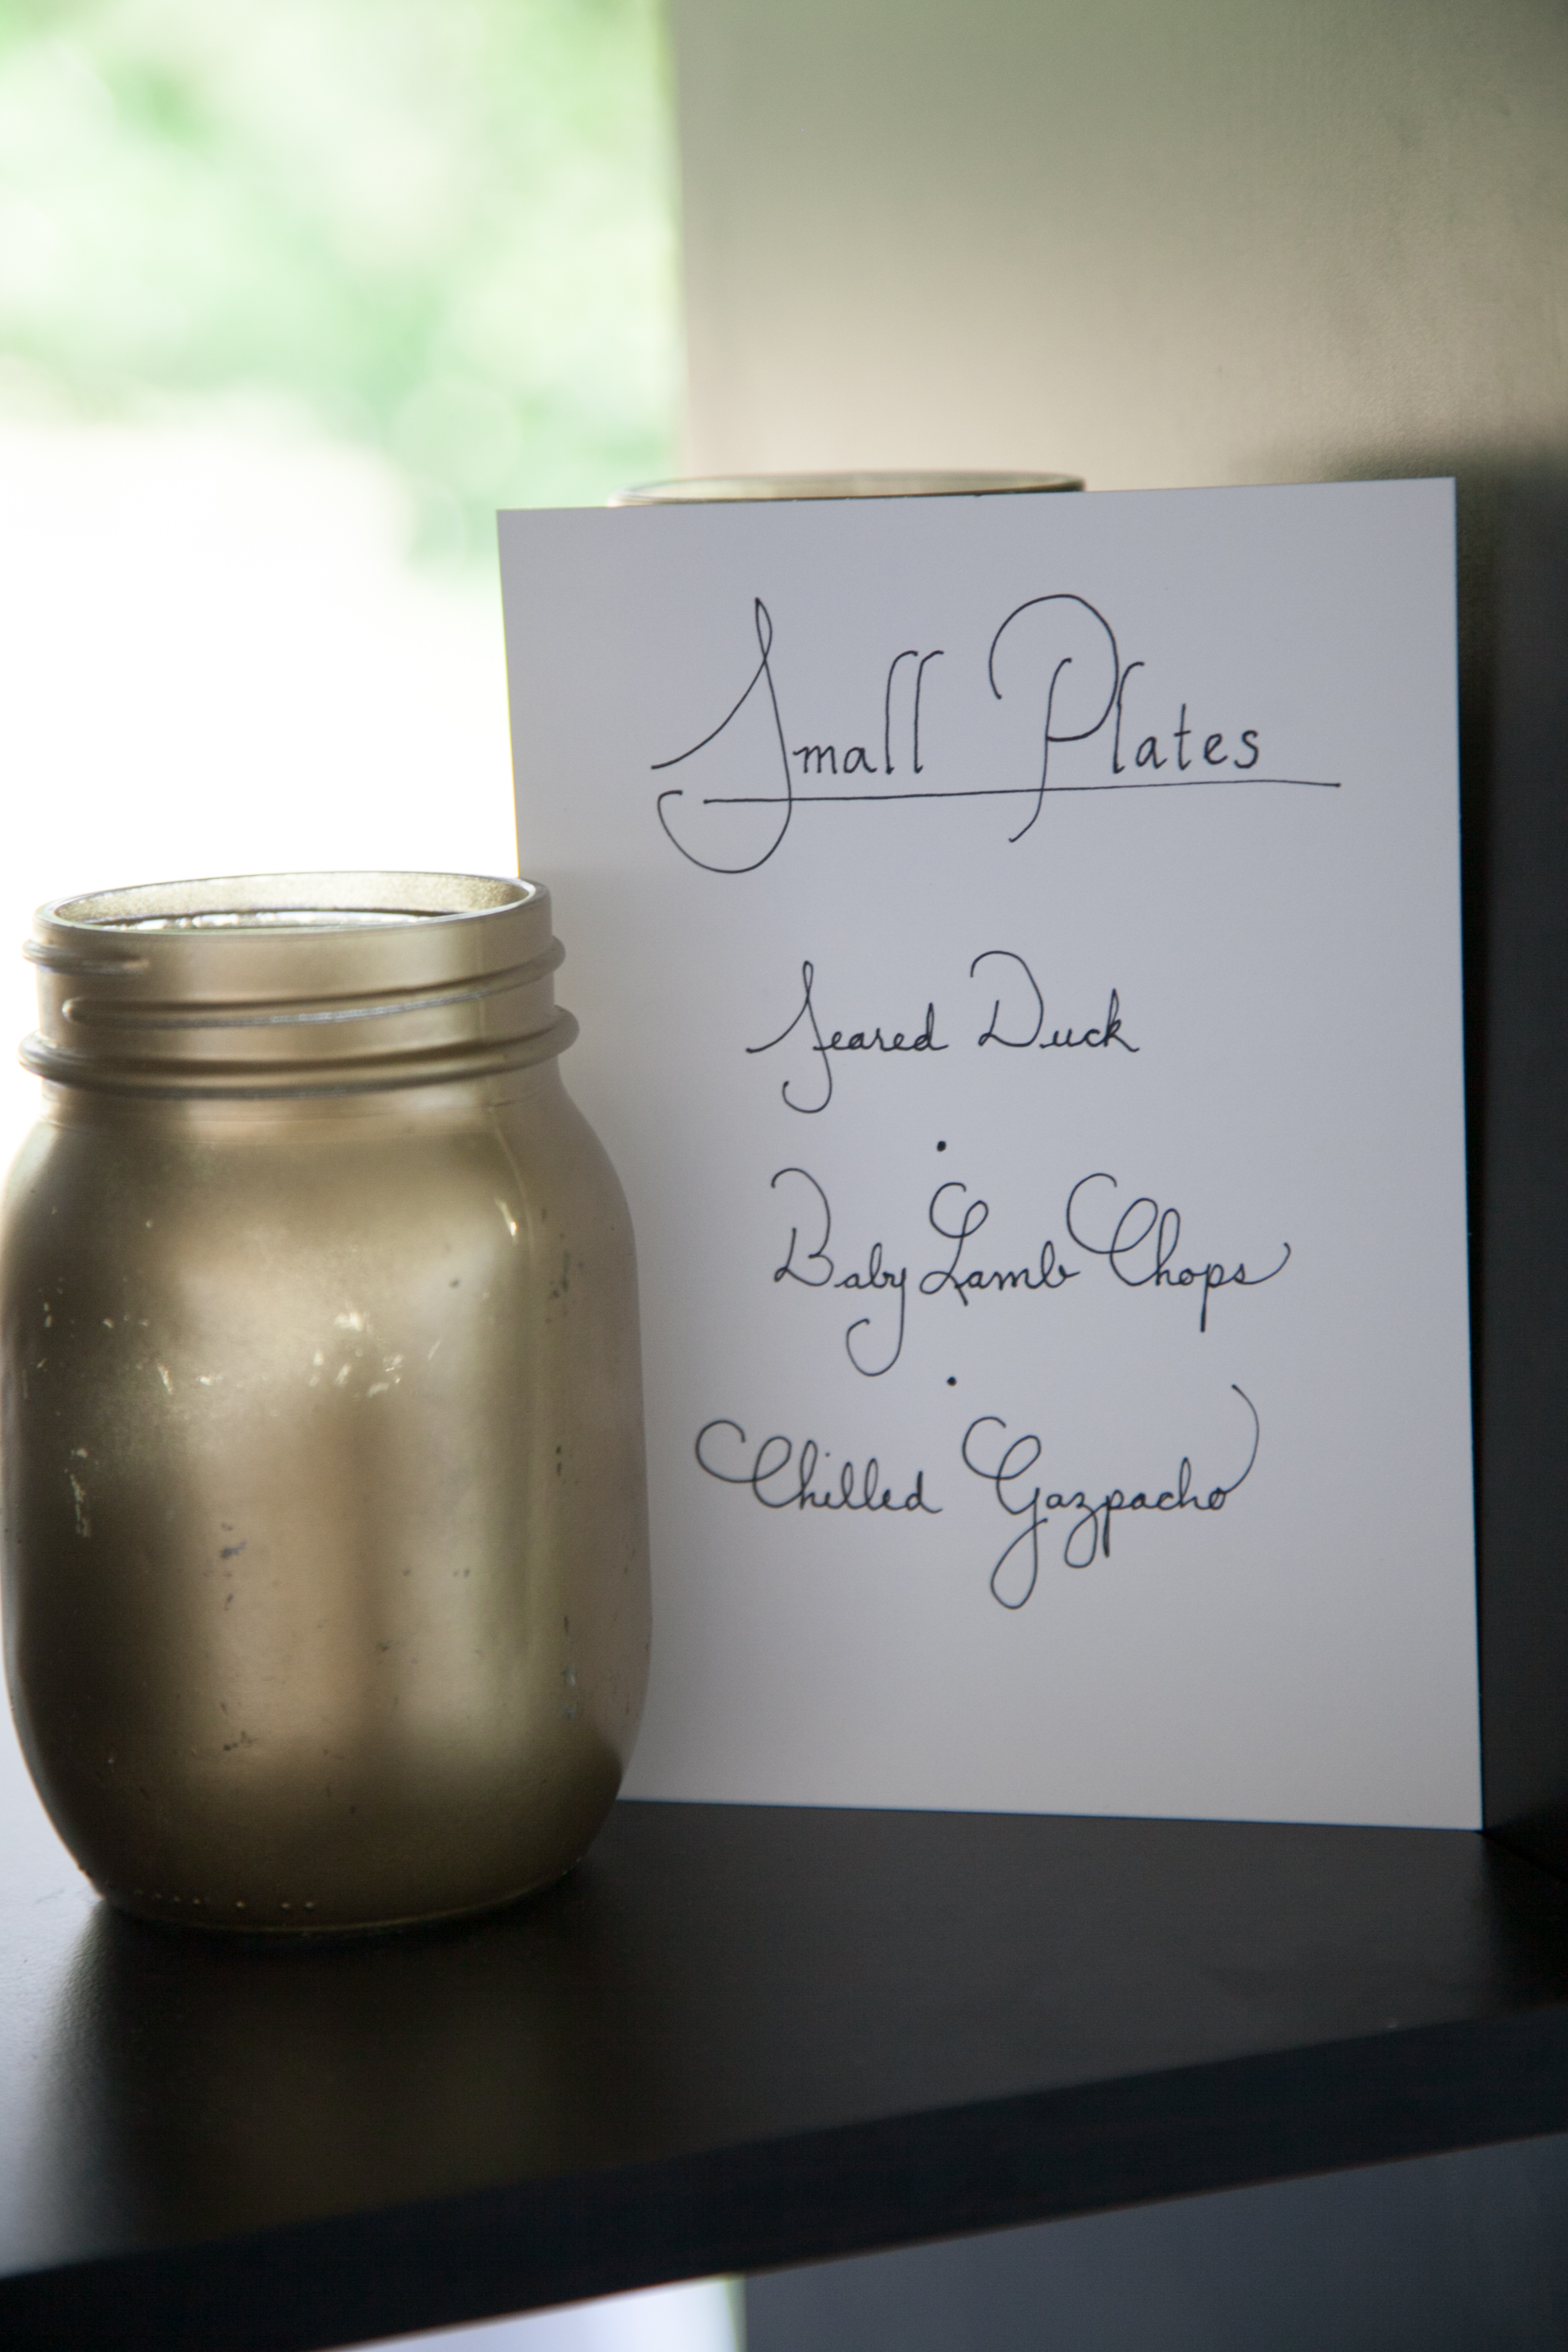 Small Plates
Seared Duck
Baby Lamb Chops
Chilled Gazpacho